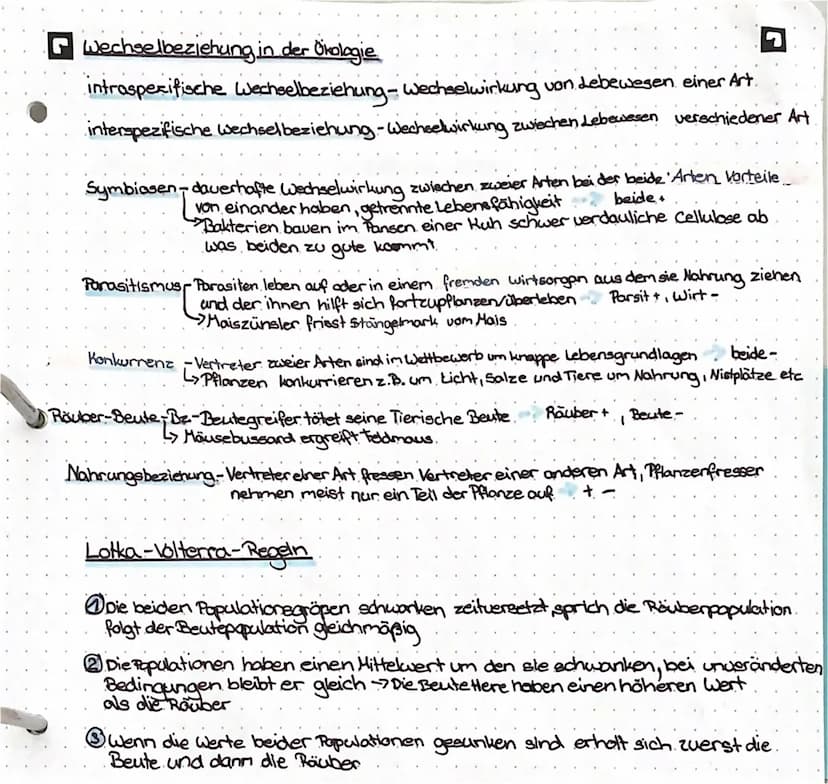 Wechselbeziehung in der Ökologie
intraspezifische Wechselbeziehung - Wechselwirkung von Lebewesen einer Art
interspezifische Wechselbeziehung - Wechselwirkung zwischen Lebewesen verschiedener Art
Symbiosen - dauerhafte Wechselwirkung zwischen zweier Arten bei der beide Arten Vorteile
von einander haben, getrennte Lebensfähigkeit → beide +
↳ Bakterien bauen im Pansen einer Kuh schwer verdauliche Cellulose ab
was beiden zu gute kommt
Parasitismus - Parasiten leben auf oder in einem fremden Wirtsorgan aus dem sie Nahrung ziehen
und der ihnen hilft sich fortzupflanzen/überleben → Parsit +, Wirt -
↳ Maiszünsler frisst Stängelmark vom Mais
Konkurrenz - Vertreter zweier Arten sind im Wettbewerb um knappe Lebensgrundlagen → beide -
↳ Pflanzen konkurrieren z.B. um Licht, Salze und Tiere um Nahrung, Nistplätze etc
Räuber-Beute-Bz - Beutegreifer tötet seine Tierische Beute → Räuber +, Beute -
↳ Mäusebussard ergreift Feldmaus
Nahrungsbeziehung - Vertreter einer Art fressen Vertreter einer anderen Art, Pflanzenfresser
nehmen meist nur ein Teil der Pflanze auf → + -
Lotka-Volterra-Regeln
① Die beiden Populationsgrößen schwanken zeitversetzt, sprich die Räuberpopulation
folgt der Beutepopulation gleichmäßig
② Die Populationen haben einen Mittelwert um den sie schwanken, bei unveränderten
Bedingungen bleibt er gleich → Die Beutetiere haben einen höheren Wert
als die Räuber
③ Wenn die Werte beider Populationen gesunken sind erholt sich zuerst die
Beute und dann die Räuber